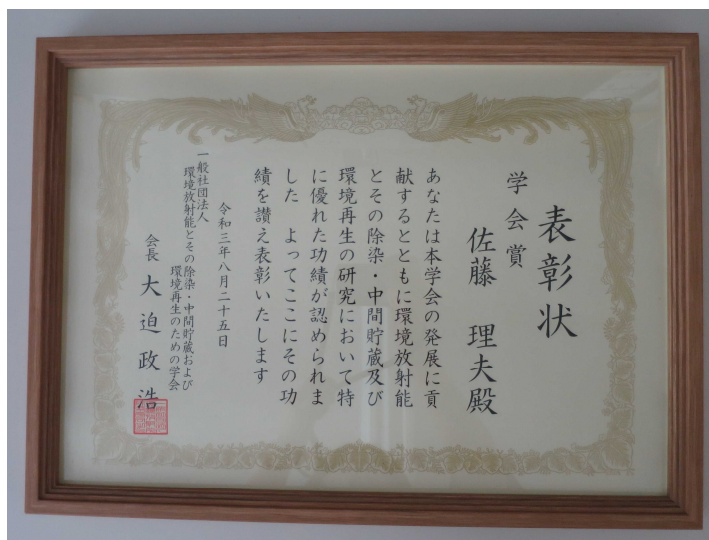 表彰状
学会賞
佐藤 理夫殿
あなたは本学会の発展に貢
献するとともに環境放射能
とその除染・中間貯蔵及び
環境再生の研究において特
に優れた功績が認められま
した よってここにその功
績を讃え表彰いたします
令和三年八月二十五日
一般社団法人
環境放射能とその除染・中間貯蔵および
環境再生のための学会
会長 大迫政浩